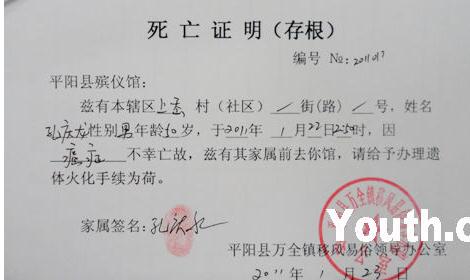 死亡证明（存根）
编号 №：2011017
平阳县殡仪馆：
兹有本辖区上 村（社区）／街(路)／号，姓名
孔庆龙性别男年龄50岁，于2011年1月22日2:50时，因
癌症 不幸亡故，兹有其家属前去你馆，请给予办理遗
体火化手续为荷。
家属签名：孔庆
平阳县万全镇移风易俗领导办公室
2011年1月23日
Youth.c